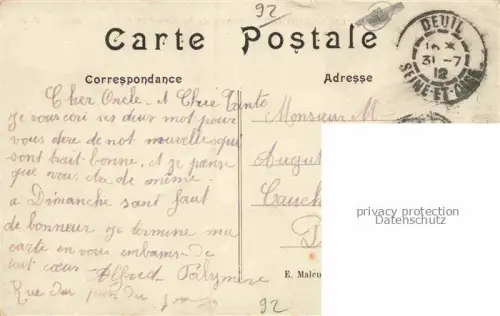 92
Carte Postale
DEUIL
16 *
31 -7
12
SEINE-ET-OISE
Correspondance
Adresse
Cher Oncle et Chrie Tante
je vous cori ses deux mot pour
vous dere de not nouvelles qui
sont trait bonne, et je pense
que vous etre de même.
a Dimanche sant faut
de bonneur je termine ma
carte en vous embamse de
tout cœur Alfred
Rue du
Monsieur M
August
Cauch
E. Maleu
privacy protection
Datenschutz
92